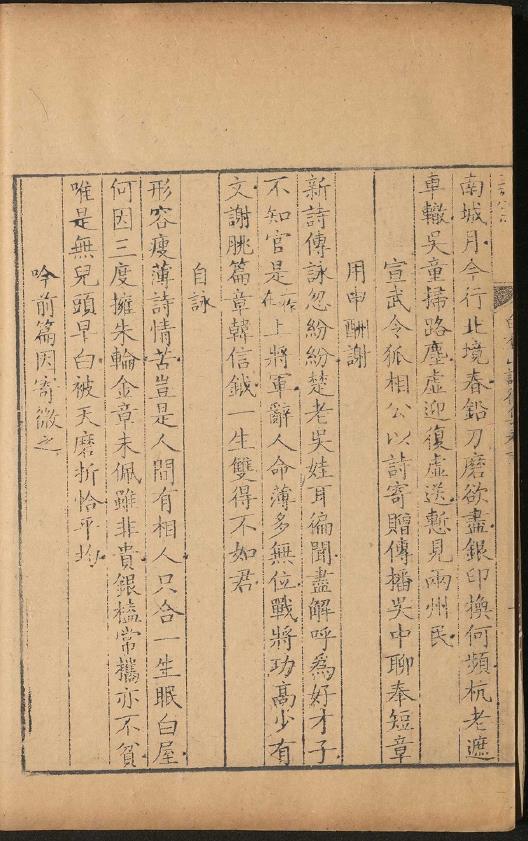 南城月今行北境春鉛刀磨欲盡銀印換何頻杭老遮
車轍吳童掃路塵虛迎復虛送慙見兩州民
宣武令狐相公以詩寄贈傳播吳中聊奉短章
用申酬謝
新詩傳詠忽紛紛楚老吳娃耳徧聞盡解呼爲好才子
不知官是上將軍辭人命薄多無位戰將功高少有
文謝脁篇章韓信鉞一生雙得不如君
自詠
形容瘦薄詩情苦豈是人間有相人只合一生眠白屋
何因三度擁朱輪金章未佩雖非貴銀榼常攜亦不貧
唯是無兒頭早白被天磨折恰平均
吟前篇因寄微之